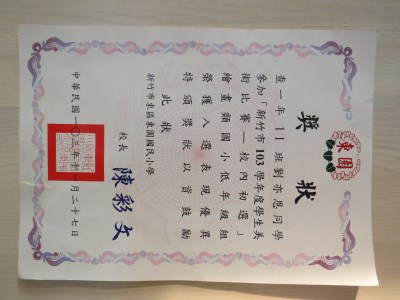 東園
獎狀
查一年11班劉亦恩同學
參加「新竹市103學年度學生美
術比賽—校內初選」
繪畫類國小低年級組
榮獲入選表現優異
特頒獎狀以資鼓勵
此狀
新竹市東區東園國民小學
校長 陳彩文
中華民國一○三年十一月二十七日